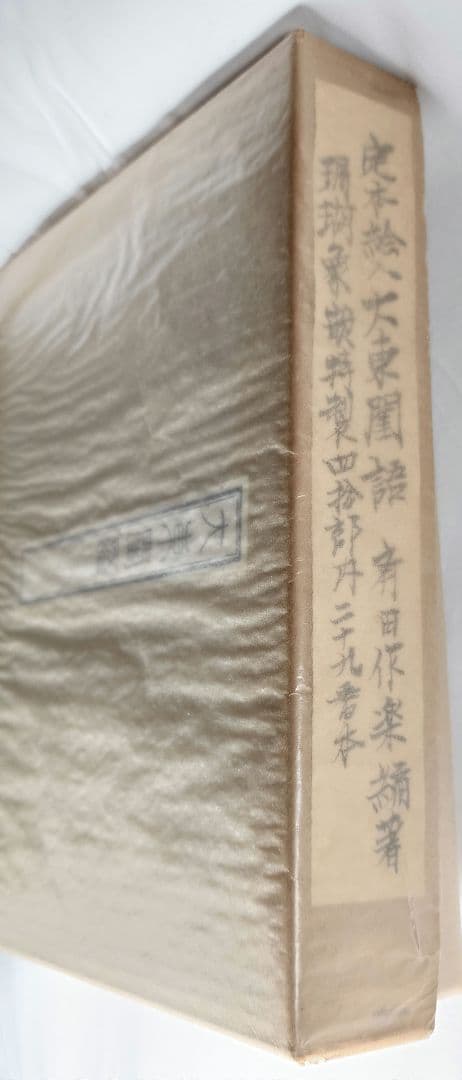 定本絵入大東閨語 斉田作楽編著
珊瑚象嵌特製四拾部内二十九番本
大東閨語